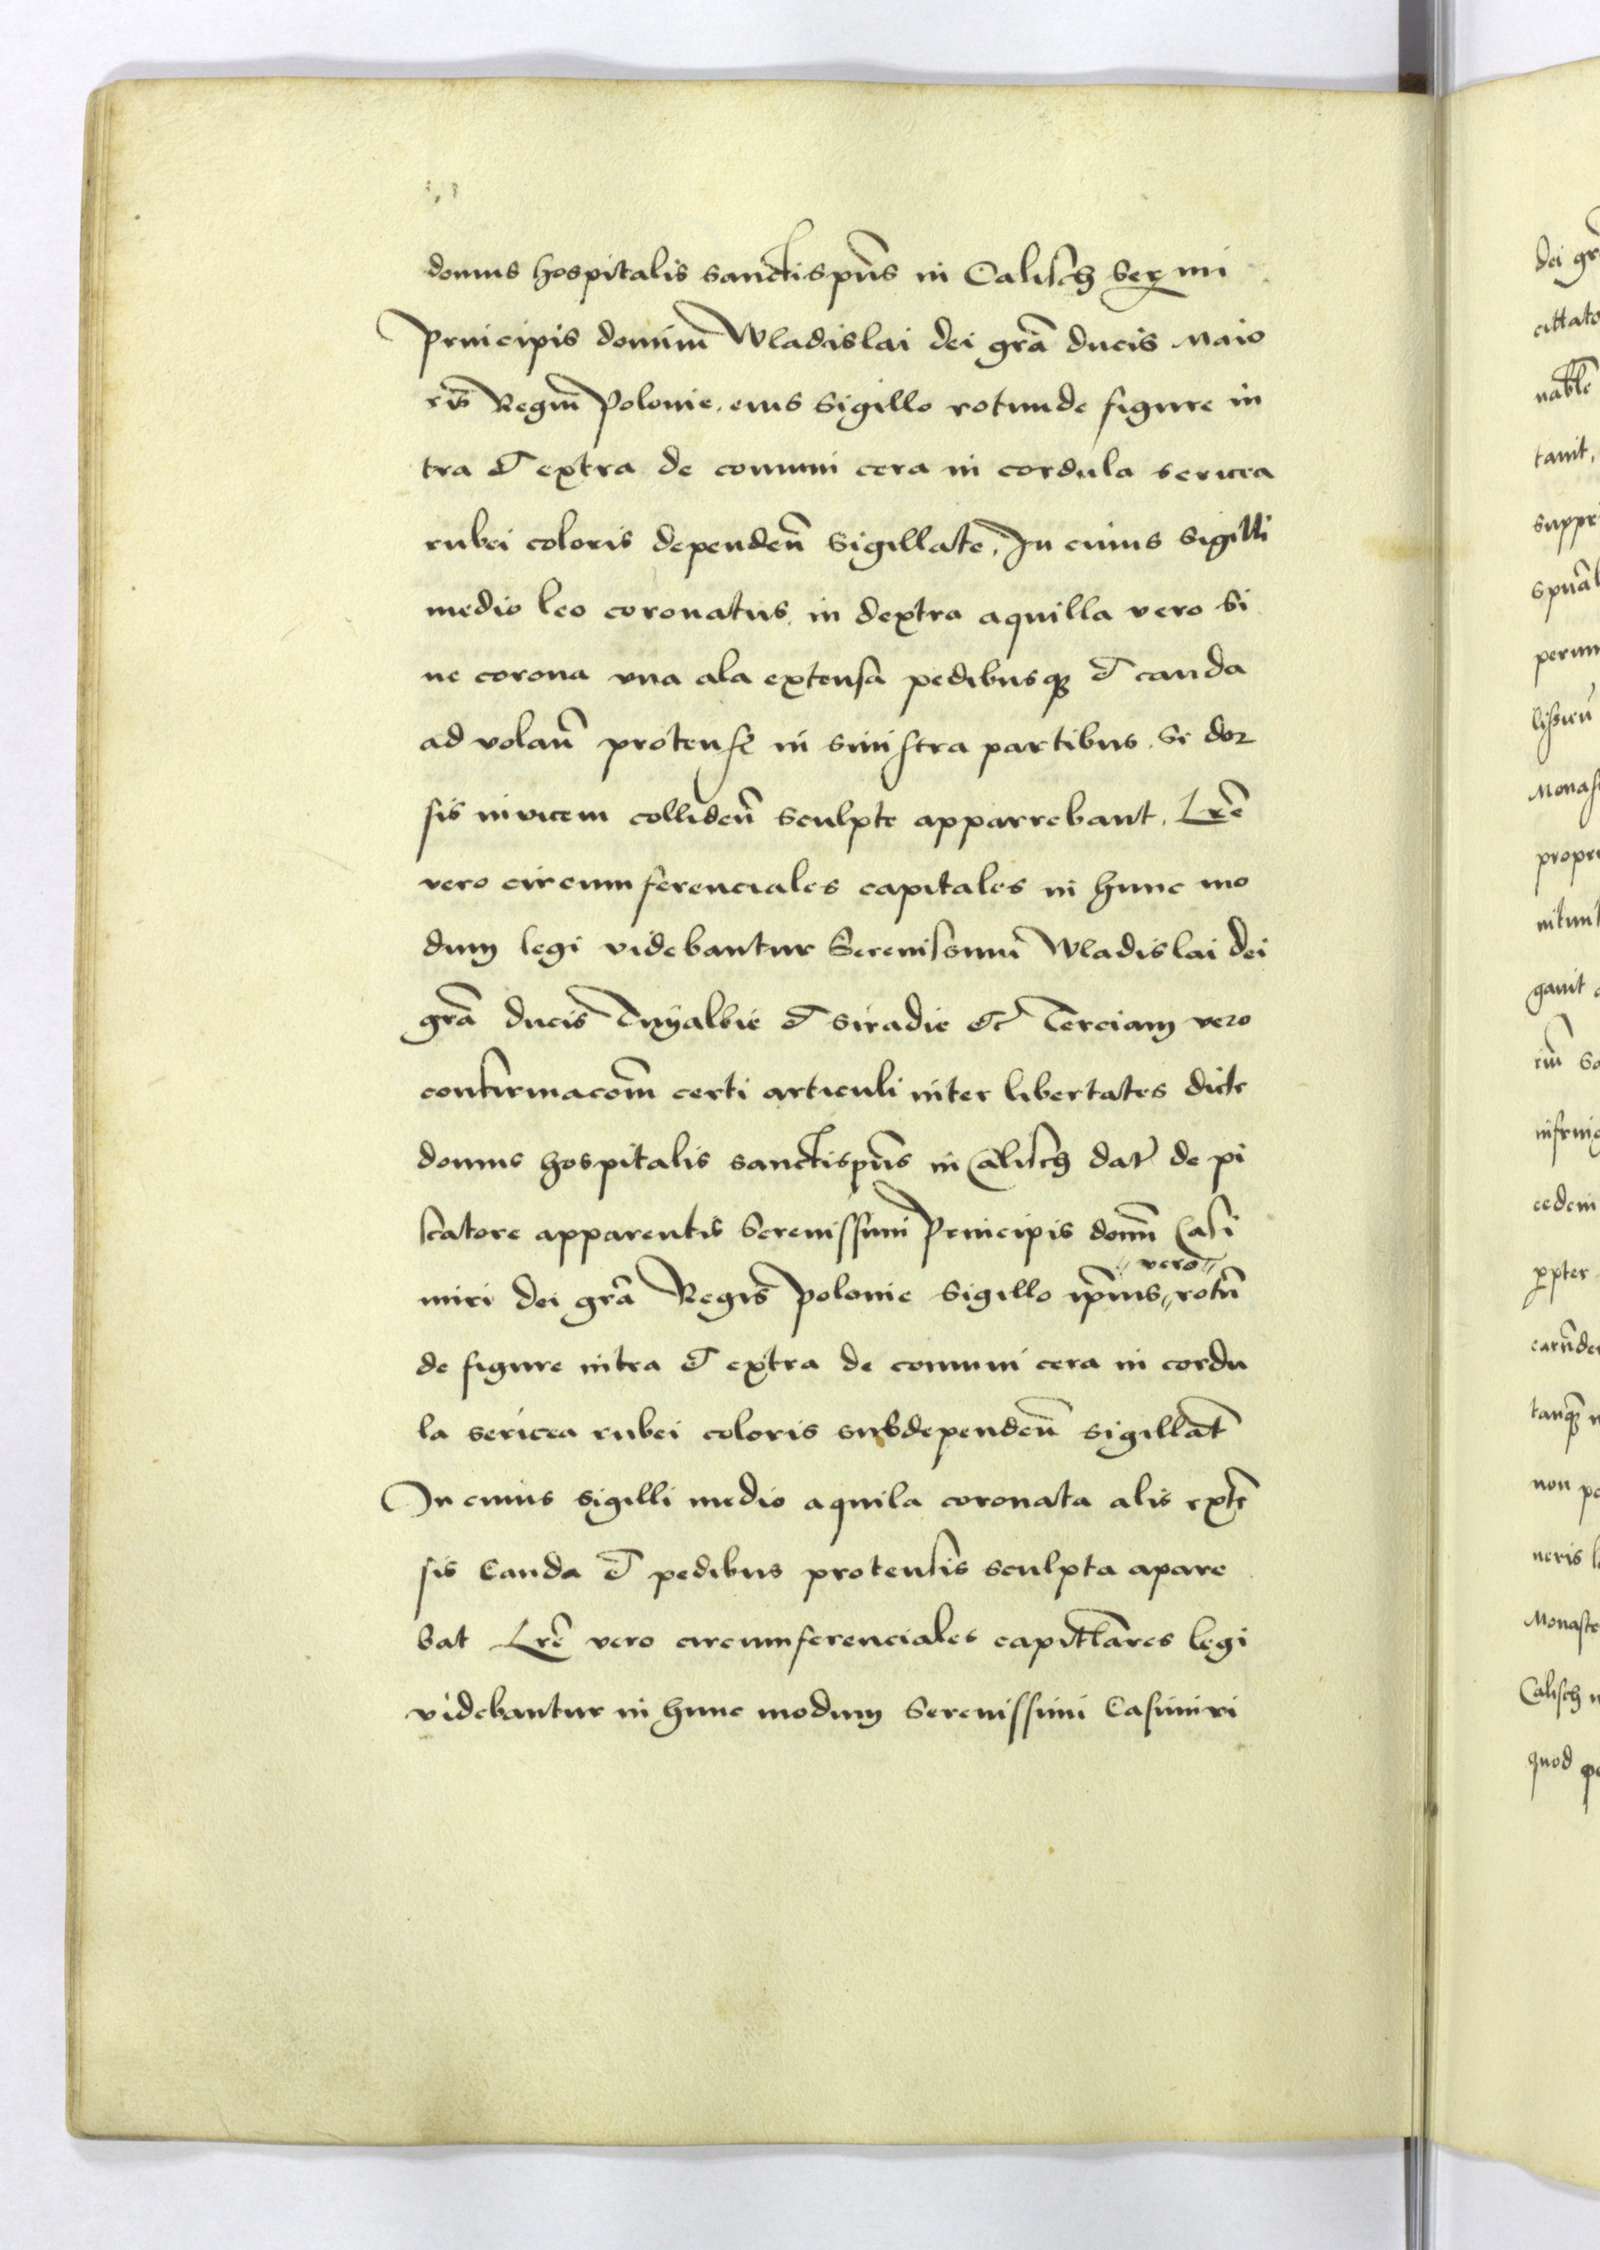 domus hospitalis sanctispūs in Calisch Ser mi
Principis dominī Wladislai dei grā ducis Maio
ris Regnī Polonie. eius sigillo rotunde figure in
tra et extra de comuni cera in cordula sericea
rubei coloris dependeñ sigillate. In cuius sigilli
medio leo coronatus in dextra aquilla vero si
ne corona vna ala extensa pedibusqꝫ et cauda
ad volañ protense in sinistra partibus. se dor
sis invicem collideñ sculpte apparrebant. Lrē
vero circumferenciales capitales in hunc mo
dum legi videbantur Serenissimī Wladislai dei
grā ducis Cuyalbie et siradie etc Terciam vero
confirmacōm certi articuli inter libertates dicte
domus hospitalis sanctispūs in Calisch dat de pi
scatore apparentis Serenissimi Principis domī Casi
miri dei grā Regis Polonie sigillo ipīus vero rotū
de figure intra et extra de comuni cera in cordu
la sericea rubei coloris subdependeñ sigillat
In cuius sigilli medio aquila coronata alis extē
sis Cauda et pedibus protensis sculpta apare
bat Lrē vero circumferenciales capitlares legi
videbantur in hunc modum Serenissimi Casimiri
dei gr
nablē
tanit,
suppri
perim
Monas
propri
gauit
cedem
non po
neris
Monaste
Calisch
quod